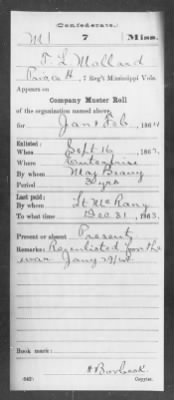 (Confederate.)
M | 7 | Miss.
T. L. Mollard
Pvt Co H, 7 Reg't Mississippi Vols.
Appears on
Company Muster Roll
of the organization named above,
for Jan & Feb, 1864
Enlisted:
When Sept 16, 186
Where Enterprise
By whom Maj
Period 3 yrs
Last paid:
By whom Lt McRany
To what time Dec 31, 1863.
Present or absent Present
Remarks: Reenlisted for the
war Jany 29/64
Book mark:
(642) Copyist.